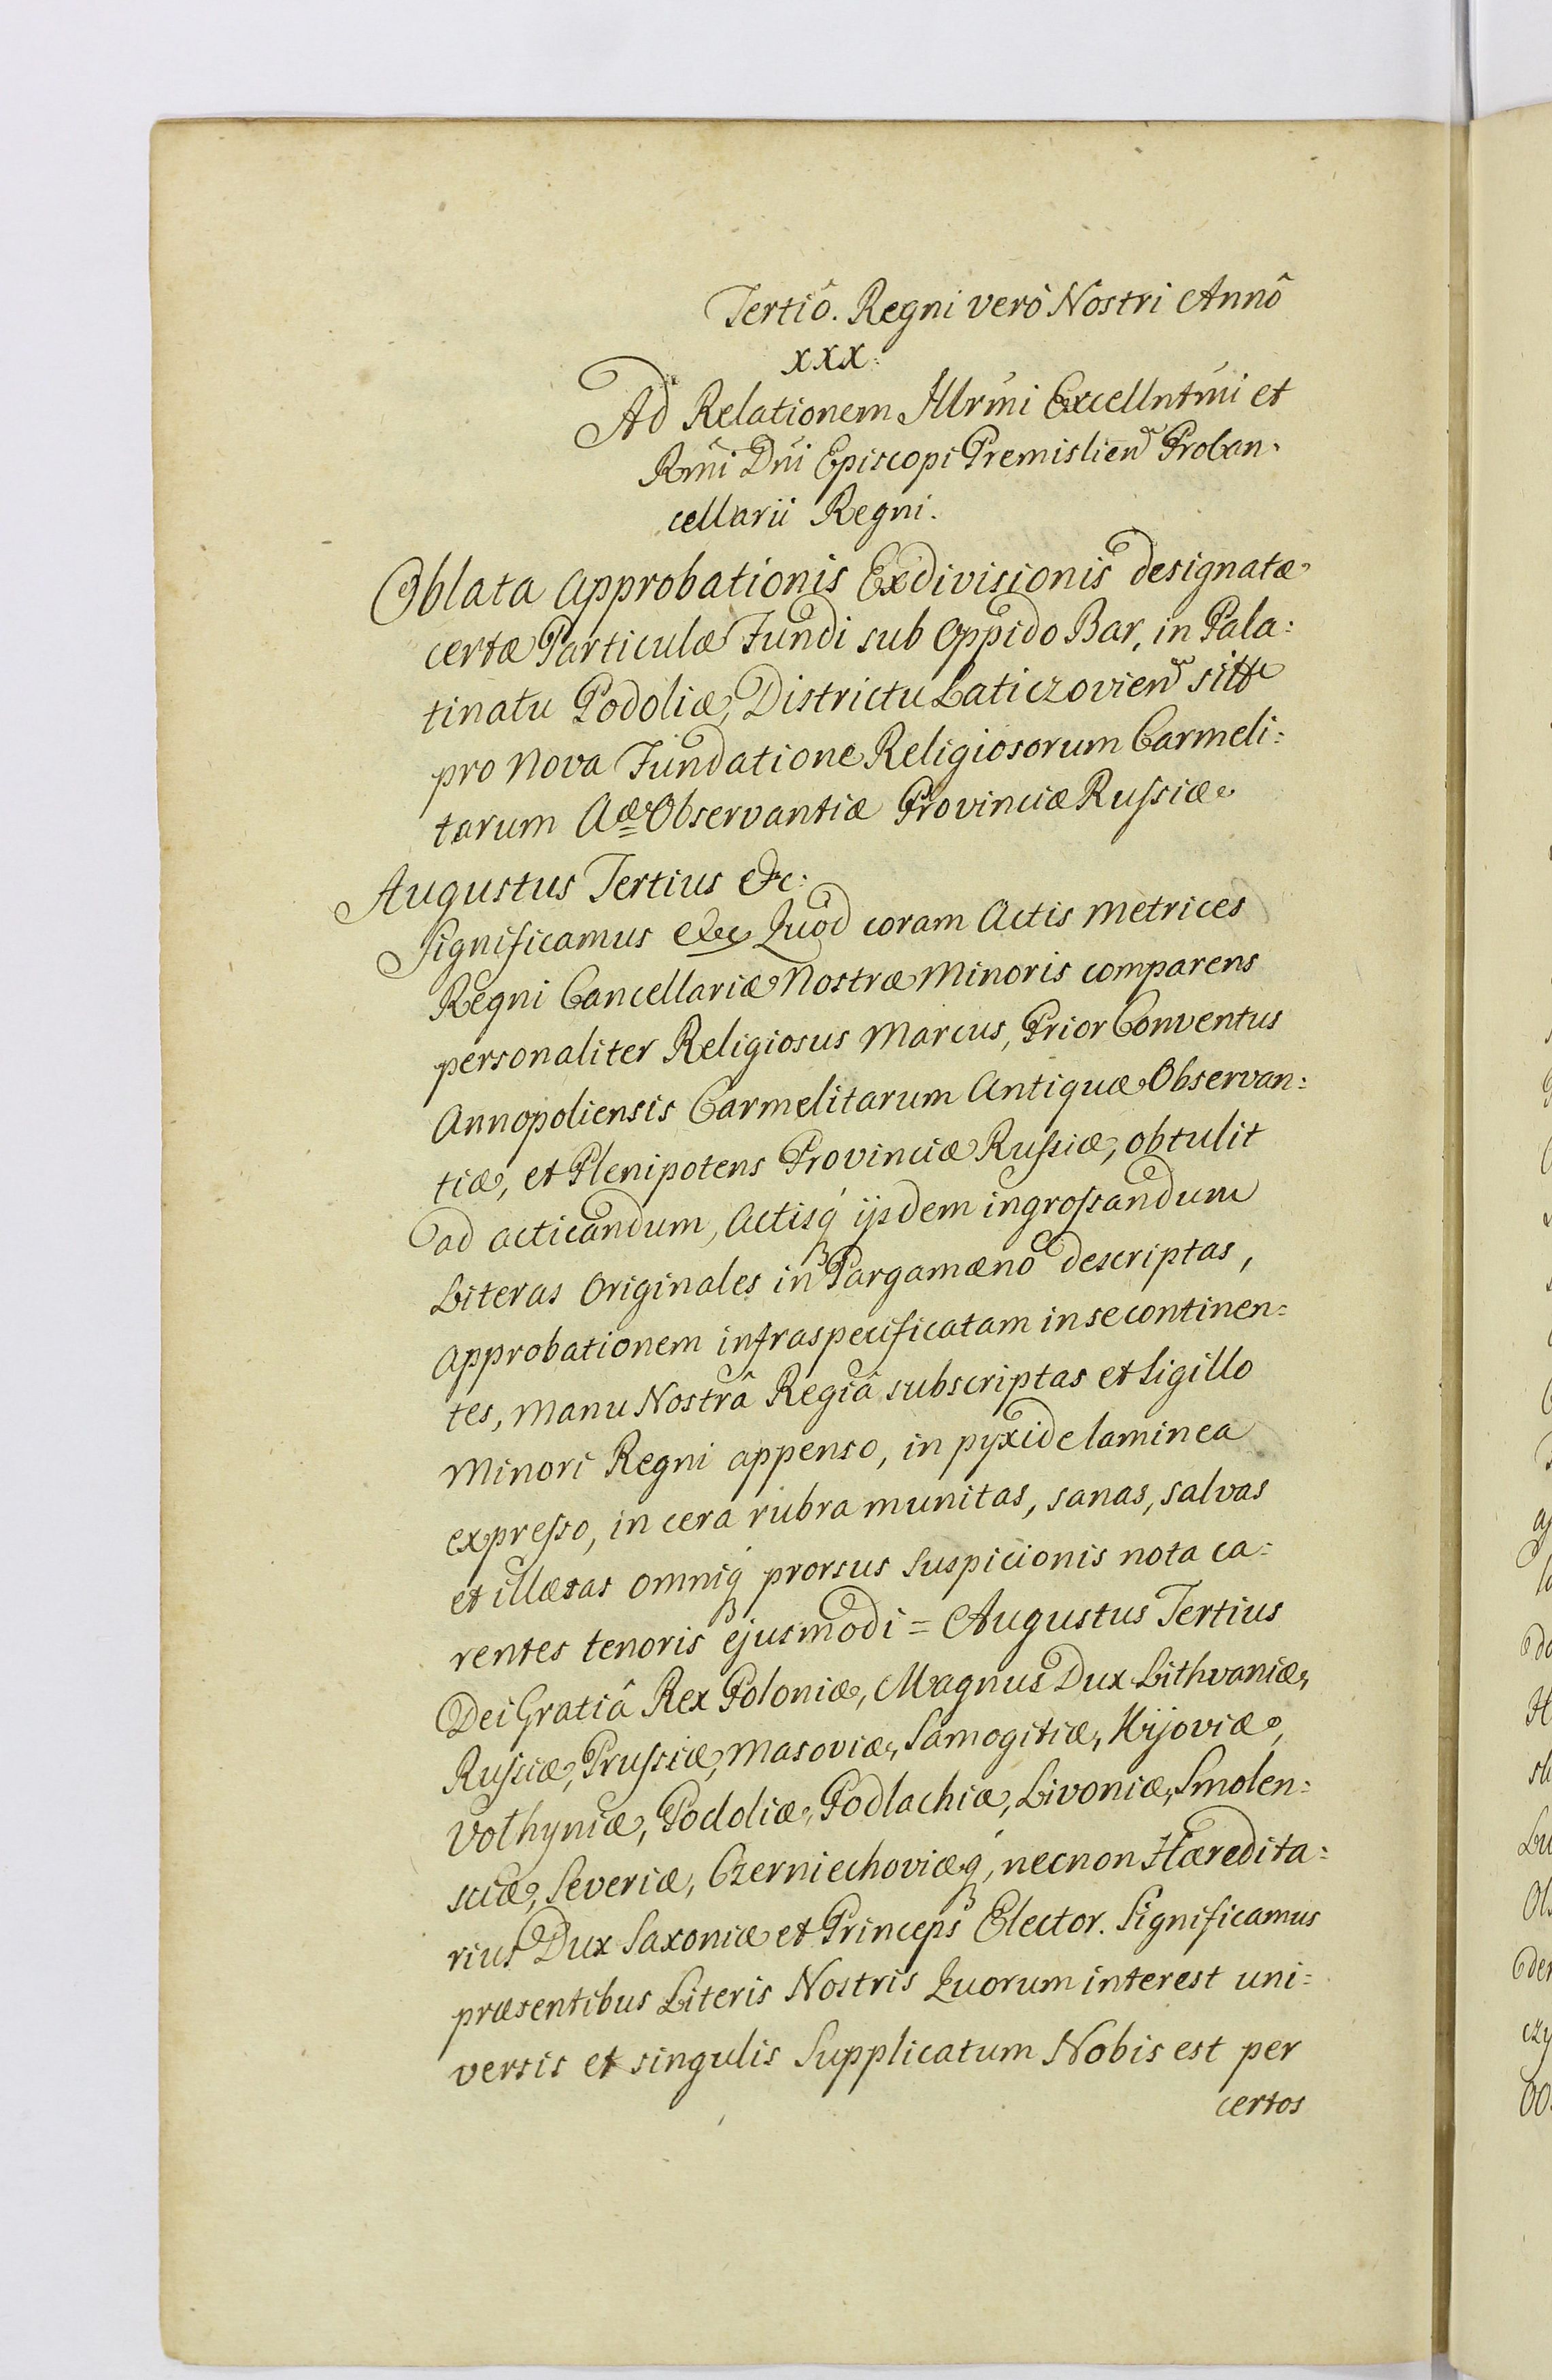 Tertiô. Regni verò Nostri Annô
XXX.
Ad Relationem Illrmi Excellntmi et
Rmi Dni Episcopi Premislien Procan:
cellarii Regni.
Oblata Approbationis Exdivisionis designatæ
certæ Particulæ Fundi sub Oppido Bar, in Pala:
tinatu Podoliæ, Districtu Laticzovien sittæ
pro Nova Fundatione Religiosorum Carmeli:
tarum Aæ Observantiæ Provinciæ Russiæ
Augustus Tertius etc:
Significamus etc Quòd coram Actis Metrices
Regni Cancellariæ Nostræ Minoris comparens
personaliter Religiosus Marcus, Prior Conventus
Annopoliensis Carmelitarum Antiquæ Observan:
tiæ, et Plenipotens Provinciæ Russiæ, obtulit
ad acticandum, Actisq́ ijsdem ingrossandum
Literas Originales in Pargamæno descriptas,
Approbationem infraspecificatam in se continen:
tes, Manu Nostrâ Regiâ subscriptas et Sigillo
Minori Regni appenso, in pyxide laminea
expresso, in cera rubra munitas, sanas, salvas
et illæsas omniq́ prorsus Suspicionis nota ca:
rentes tenoris ejusmodi = Augustus Tertius
Dei Gratiâ Rex Poloniæ, Magnus Dux Lithvaniæ,
Russiæ, Prussiæ, Masoviæ, Samogitiæ, Kijoviæ,
Volhyniæ, Podoliæ, Podlachiæ, Livoniæ, Smolen:
sciæ, Severiæ, Czerniechoviæq́, necnon Hæredita:
rius Dux Saxoniæ et Princeps Elector. Significamus
præsentibus Literis Nostris Quorum interest uni:
versis et singulis Supplicatum Nobis est per
certos